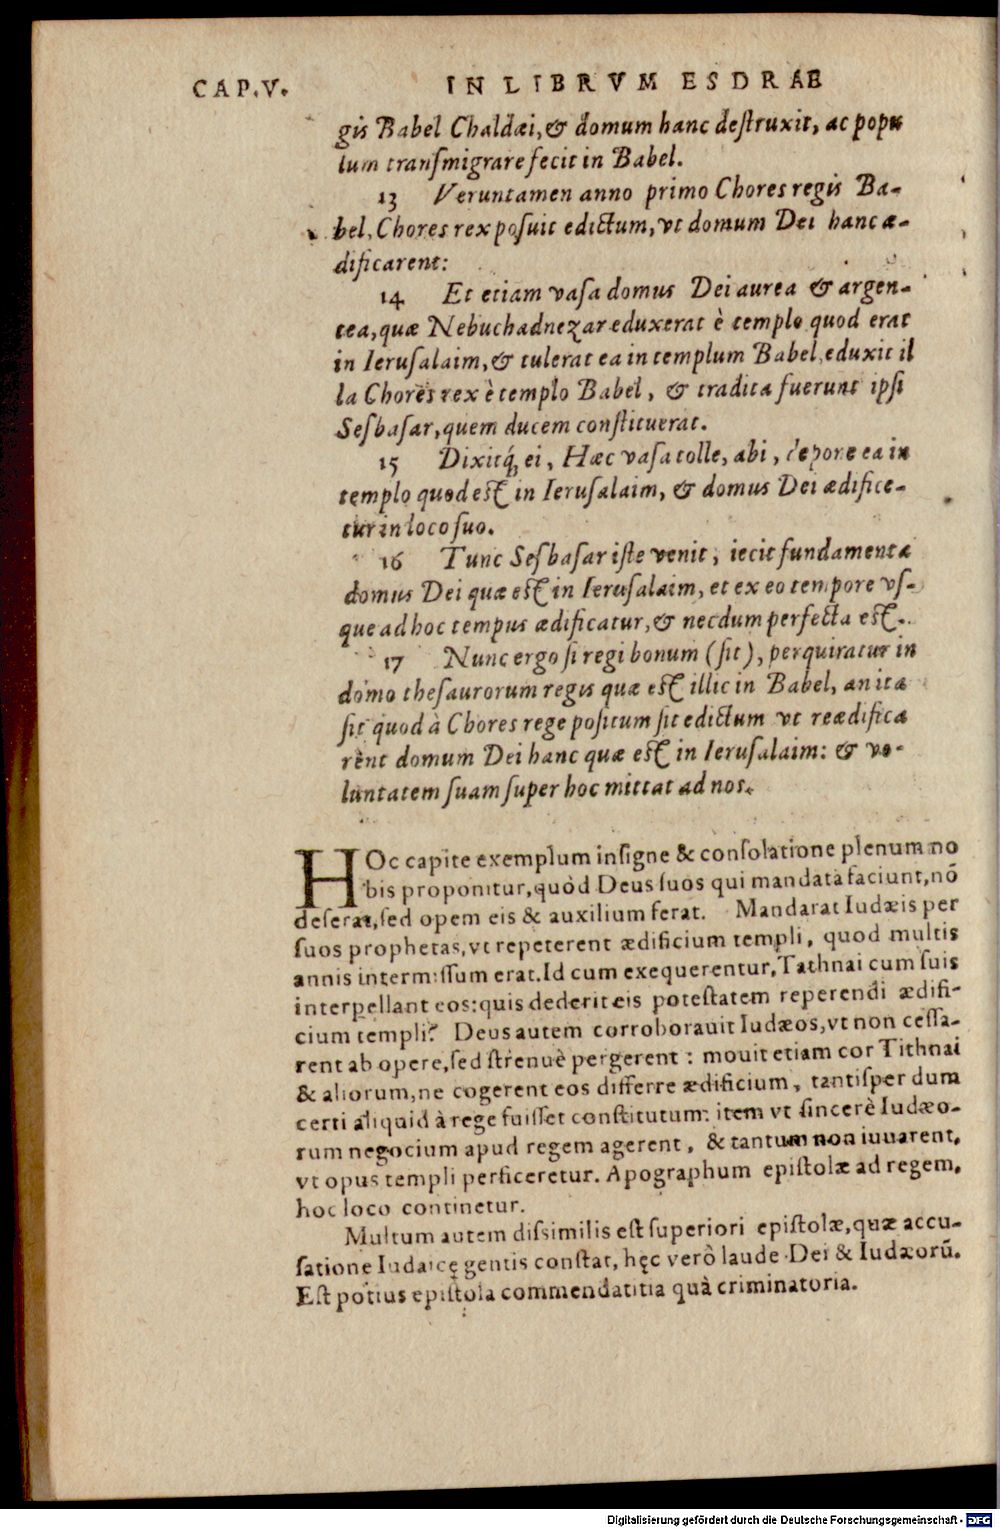 CAP.V. IN LIBRVM ESDRAE
gis Babel Chaldæi, & domum hanc deſtruxit, ac popu
lum tranſmigrare fecit in Babel.
13 Veruntamen anno primo Chores regis Ba-
bel, Chores rex poſuit edictum, vt domum Dei hanc æ-
dificarent:
14 Et etiam vaſa domus Dei aurea & argen-
tea, quæ Nebuchadnezar eduxerat è templo quod erat
in Ieruſalaim, & tulerat ea in templum Babel, eduxit il
la Chores rex è templo Babel, & tradita fuerunt ipſi
Sesbaſar, quem ducem conſtituerat.
15 Dixitq́; ei, Hæc vaſa tolle, abi, depone ea in
templo quod eſt in Ieruſalaim, & domus Dei ædifice-
tur in loco ſuo.
16 Tunc Sesbaſar iſte venit, iecit fundamenta
domus Dei quæ eſt in Ieruſalaim, et ex eo tempore vſ-
que ad hoc tempus ædificatur, & necdum perfecta eſt.
17 Nunc ergo ſi regi bonum (ſit), perquiratur in
domo theſaurorum regis quæ eſt illic in Babel, an ita
ſit quod à Chores rege poſitum ſit edictum vt reædifica
rent domum Dei hanc quæ eſt in Ieruſalaim: & vo-
luntatem ſuam ſuper hoc mittat ad nos.
HOc capite exemplum inſigne & conſolatione plenum no
bis proponitur, quòd Deus ſuos qui mandata faciunt, nō
deſerat, ſed opem eis & auxilium ferat. Mandarat Iudæis per
ſuos prophetas, vt repeterent ædificium templi, quod multis
annis intermiſſum erat. Id cum exequerentur, Tathnai cum ſuis
interpellant eos: quis dederit eis poteſtatem reperendi ædifi-
cium templi? Deus autem corroborauit Iudæos, vt non ceſſa-
rent ab opere, ſed ſtrenuè pergerent: mouit etiam cor Tithnai
& aliorum, ne cogerent eos differre ædificium, tantiſper dum
certi aliquid à rege fuiſſet conſtitutum: item vt ſincerè Iudæo-
rum negocium apud regem agerent, & tantum non iuuarent,
vt opus templi perficeretur. Apographum epiſtolæ ad regem,
hoc loco continetur.
Multum autem diſsimilis eſt ſuperiori epiſtolæ, quæ accu-
ſatione Iudaicę gentis conſtat, hęc verò laude Dei & Iudæorū.
Eſt potius epiſtola commendatitia quà criminatoria.
Digitalisierung gefördert durch die Deutsche Forschungsgemeinschaft - DFG